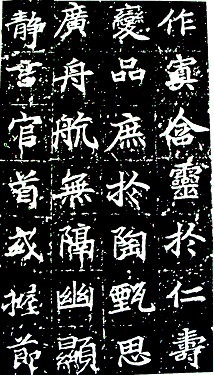 作寘含靈於仁壽
變品庶於陶甄思
廣舟航無隔幽顯
静言官首或節